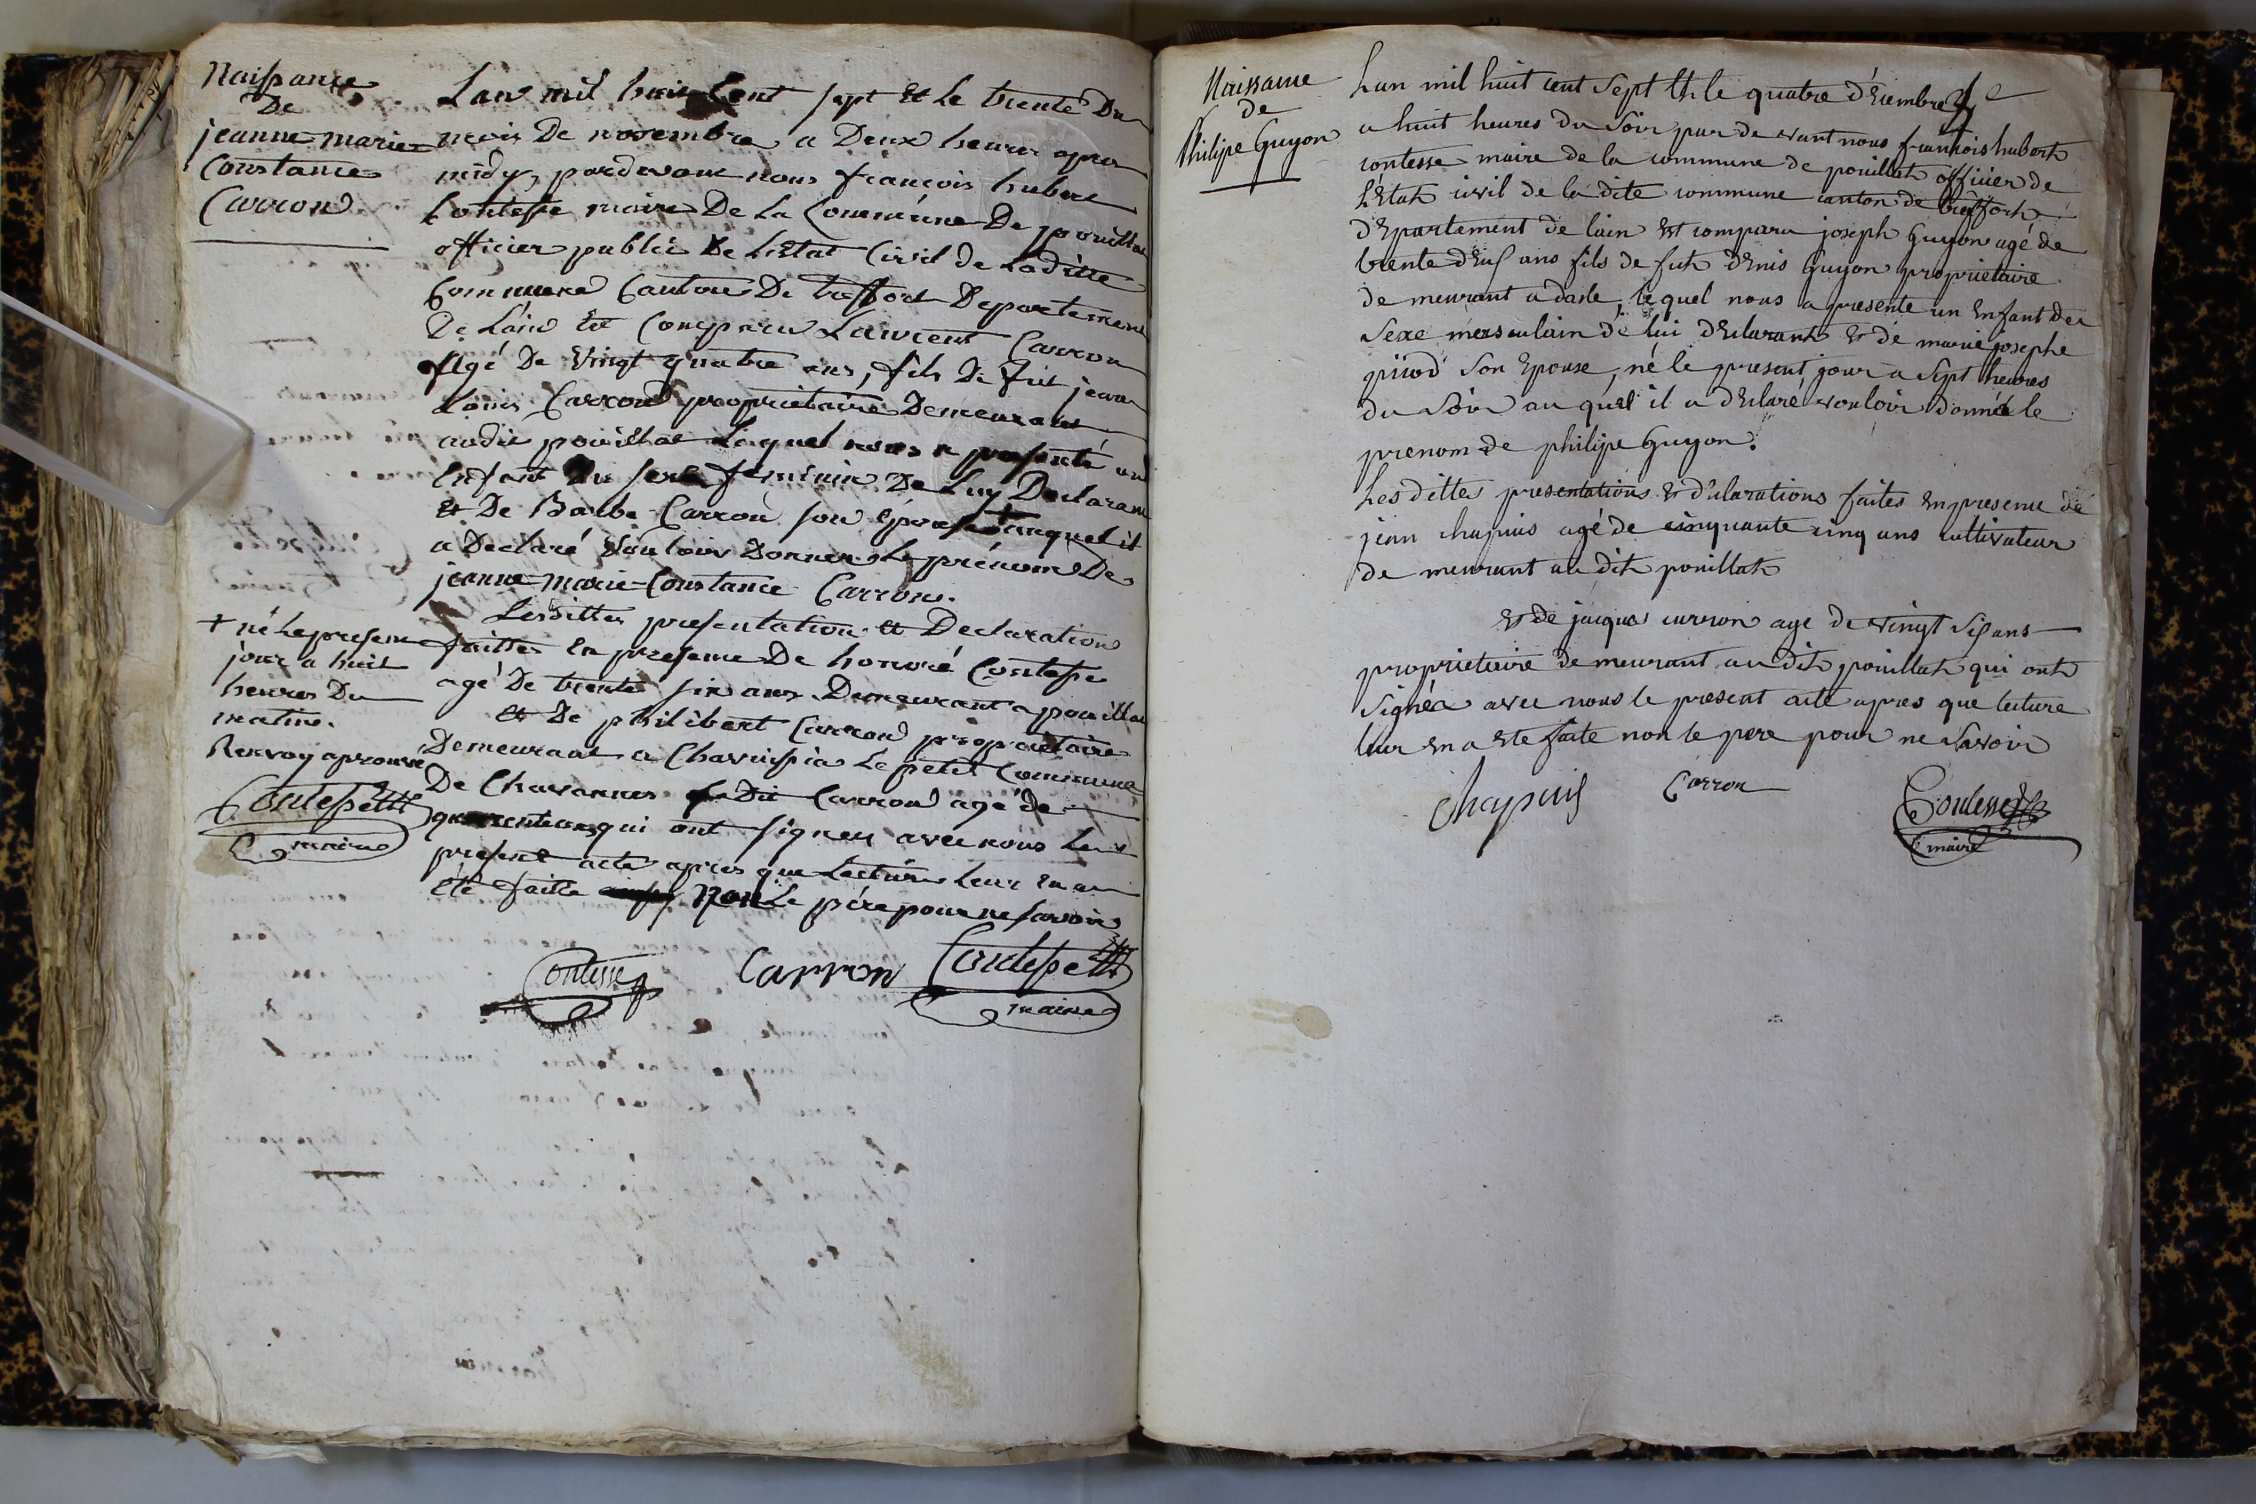 Naissance
De
jeanne marie
Constance
Carron
Lan mil huit Cent sept Et Le trente Du
mois De novembre a Deux heures apres
midy, pardevant nous françois hubert
Contesse maire De La Commune De pouillat
officier public De LEtat Civil de Laditte
Commune Canton De treffort Departement
De Lain Est Comparu Laurent Carron
Agé De Vingt quatre ans, fils De fut jean
Louis Carron propriétaire Demeurant
audit pouillat Lequel nous a presenté un
Enfant Du sexe feminin De Luy Declarant
Et De Barbe Carron son Epouse + auquel il
a Declaré Vouloir Donner Le prénom De
jeanne-marie-Constance Carron.
Lesdittes presentation et Declaration
faittes En presence De honoré Contesse
agé De trente six ans Demeurant a pouillat
Et De philibert Carron propriétaire
Demeurant a Le petit Commune
De Chavannes Le Dit Carron agé de
quarente ans qui ont signeu avec nous Le
present acte apres que Lecture Leur En a
été faitte Non Le pére pour ne savoir
+ né Le present
jour a huit
heures Du
matin.
Renvoy aprouvé
Contesse
maire
Contesse Carron Contesse
maire
Naissance
de
Philipe Guyon
Lan mil huit cent Sept Et le quatre dEcembre
a huit heures du Soir par devant nous francois hubert
contesse maire de la commune de pouillat officier de
LEtat civil de la dite commune canton de treffort
dEpartement de lain Est comparu joseph Guyon agé de
trente dEuf ans fils de fut dEnis Guyon propriétaire
de meurant a dasle, le quel nous a presente un Enfant de
Sexe masculain de lui dEclarant Et de marie josephe
son Epouse, né le present jour a Sept heures
du Soir au quel il a dEclaré vouloir donné le
prenom de philipe Guyon.
Les dittes presentations Et dEclarations faites En presence de
jean chapuis agé de cinquante cinq ans cultivateur
de meurant au dit pouillat
Et de jacque carron age de vingt Sis ans
proprietaire de meurant au dit pouillat qui ont
Signéa avec nous le present acte apres que lecture
leur En a Ete faite non le pere pour ne Savoir
Chapuis Carron Contesse
maire